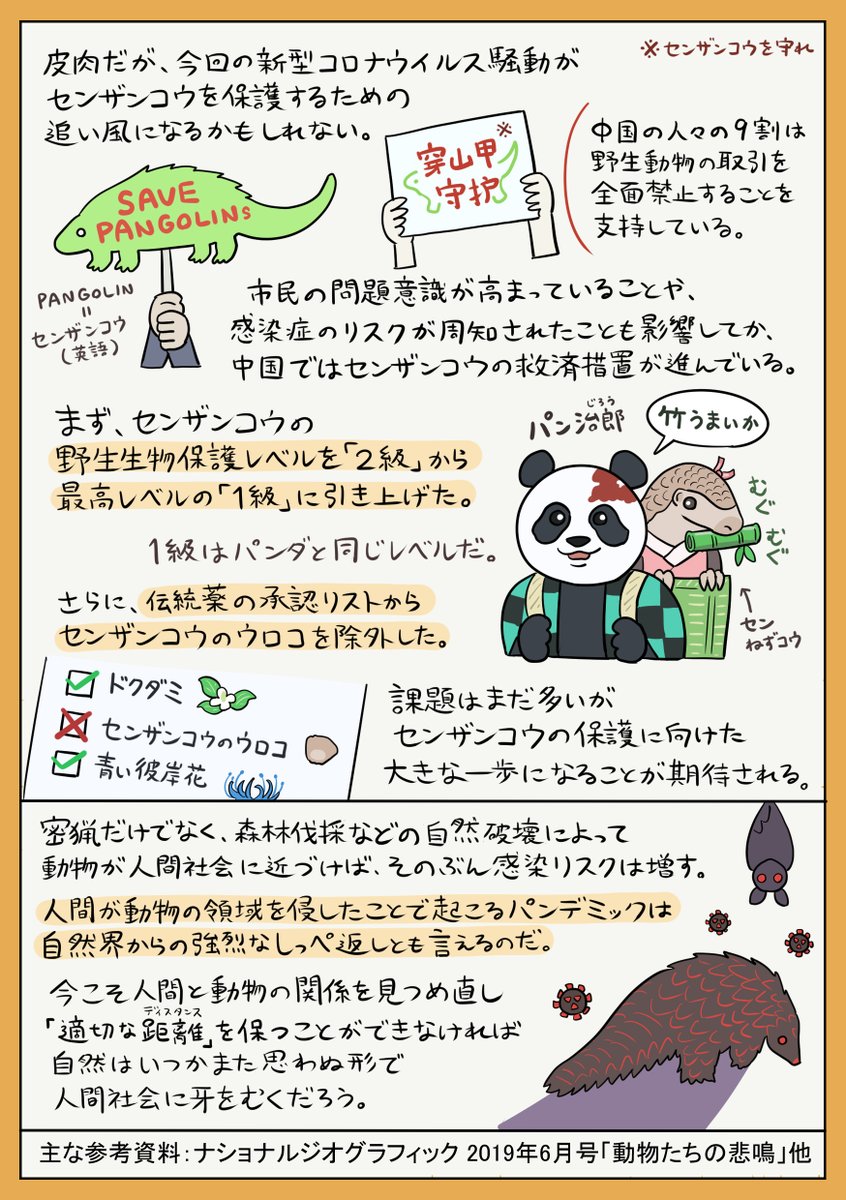 皮肉だが、今回の新型コロナウイルス騒動が
センザンコウを保護するための
追い風になるかもしれない。
※センザンコウを守れ
SAVE
PANGOLINs
PANGOLIN
=
センザンコウ
(英語)
穿山甲※
守护
中国の人々の9割は
野生動物の取引を
全面禁止することを
支持している。
市民の問題意識が高まっていることや、
感染症のリスクが周知されたことも影響してか、
中国ではセンザンコウの救済措置が進んでいる。
まず、センザンコウの
野生生物保護レベルを「2級」から
最高レベルの「1級」に引き上げた。
1級はパンダと同じレベルだ。
じろう
パン治郎
竹うまいか
むぐ
むぐ
セン
ねずコウ
さらに、伝統薬の承認リストから
センザンコウのウロコを除外した。
ドクダミ
センザンコウのウロコ
青い彼岸花
課題はまだ多いが
センザンコウの保護に向けた
大きな一歩になることが期待される。
密猟だけでなく、森林伐採などの自然破壊によって
動物が人間社会に近づけば、そのぶん感染リスクは増す。
人間が動物の領域を侵したことで起こるパンデミックは
自然界からの強烈なしっぺ返しとも言えるのだ。
今こそ人間と動物の関係を見つめ直し
ディスタンス
「適切な距離」を保つことができなければ
自然はいつかまた思わぬ形で
人間社会に牙をむくだろう。
主な参考資料:ナショナルジオグラフィック 2019年6月号「動物たちの悲鳴」他